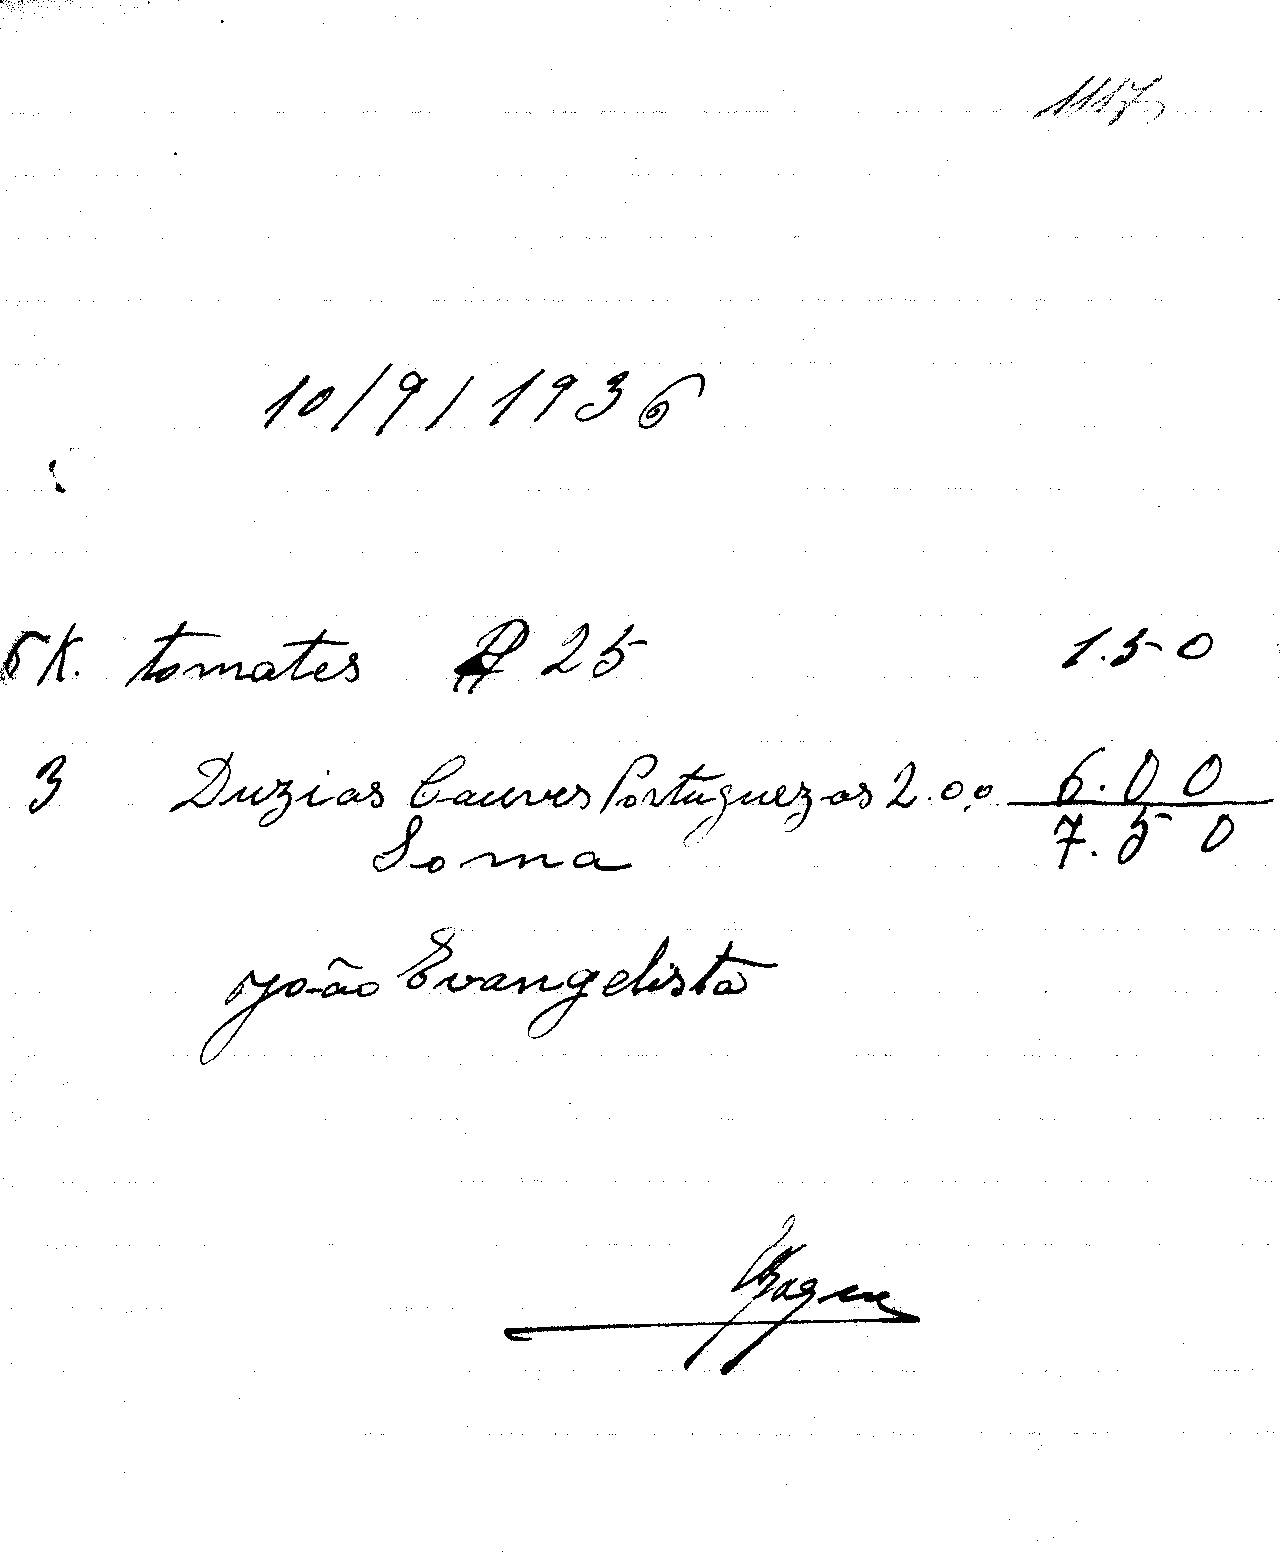 1117
10/9/1936
6 K. tomates 25 1.50
3 Duzias Couves Portuguezas 2.00 6.00
Soma 7.50
João Evangelista